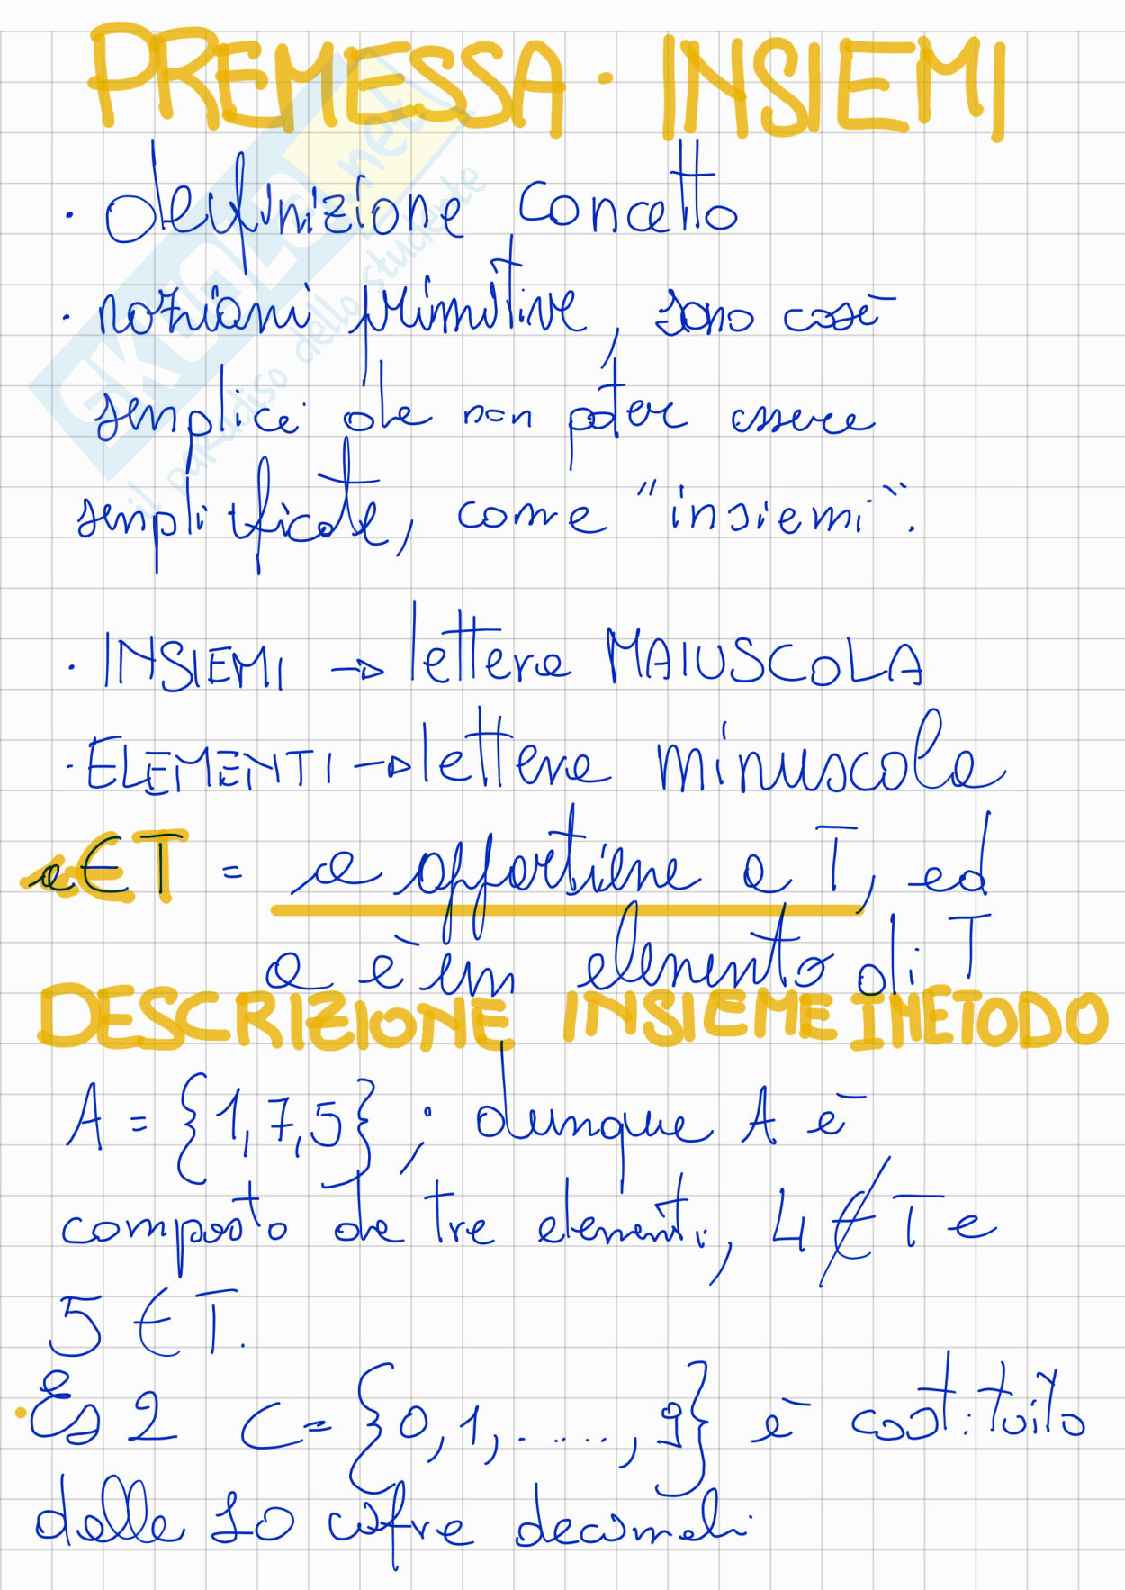 PREMESSA · INSIEMI
· definizione concetto
· nozioni primitive, sono cose
semplici che non poter essere
semplificate, come "insiemi".
· INSIEMI → lettera MAIUSCOLA
· ELEMENTI → lettera minuscola
a ∈ T = a appartiene a T, ed
a è un elemento di T
DESCRIZIONE INSIEME I METODO
A = {1, 7, 5} ; dunque A è
composto da tre elementi, 4 ∉ T e
5 ∈ T.
· Es 2 C = {0, 1, ....., 9} è costituito
dalle 10 cifre decimali
SKUOLA.net
il paradiso dello studente